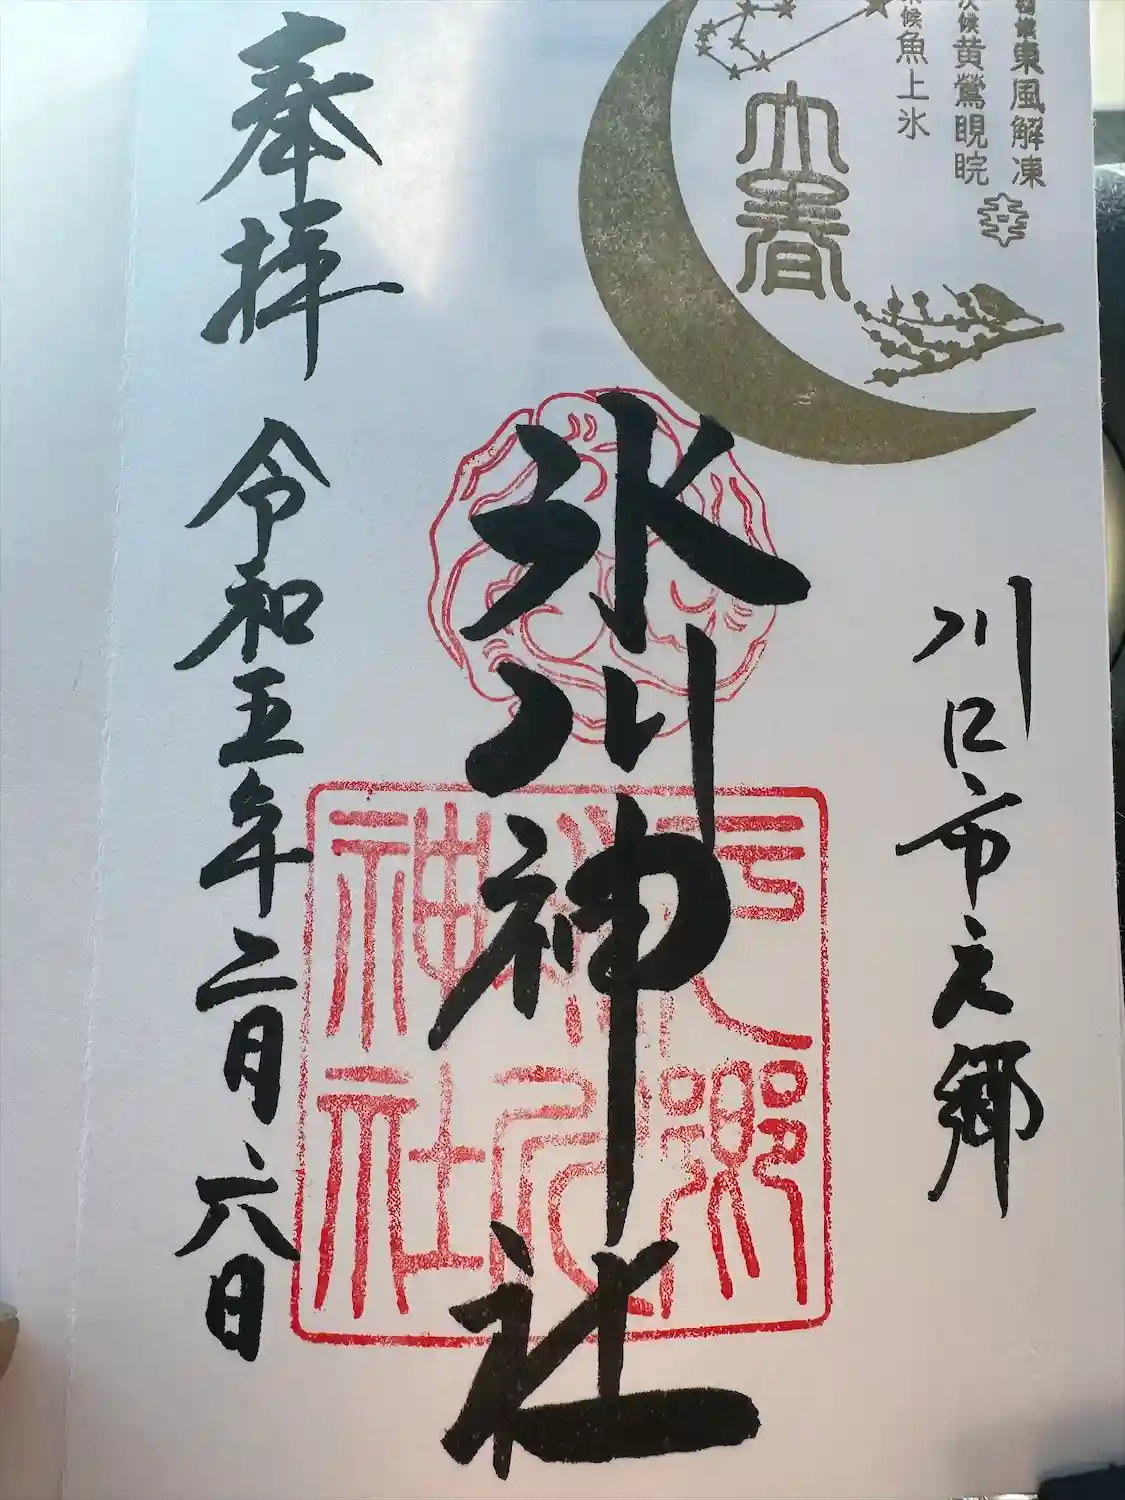 初候東風解凍
次候黄鶯睍睆
末候魚上氷
立春
川口市元郷
氷川神社
元郷
氷川
神社
奉拝
令和五年二月六日